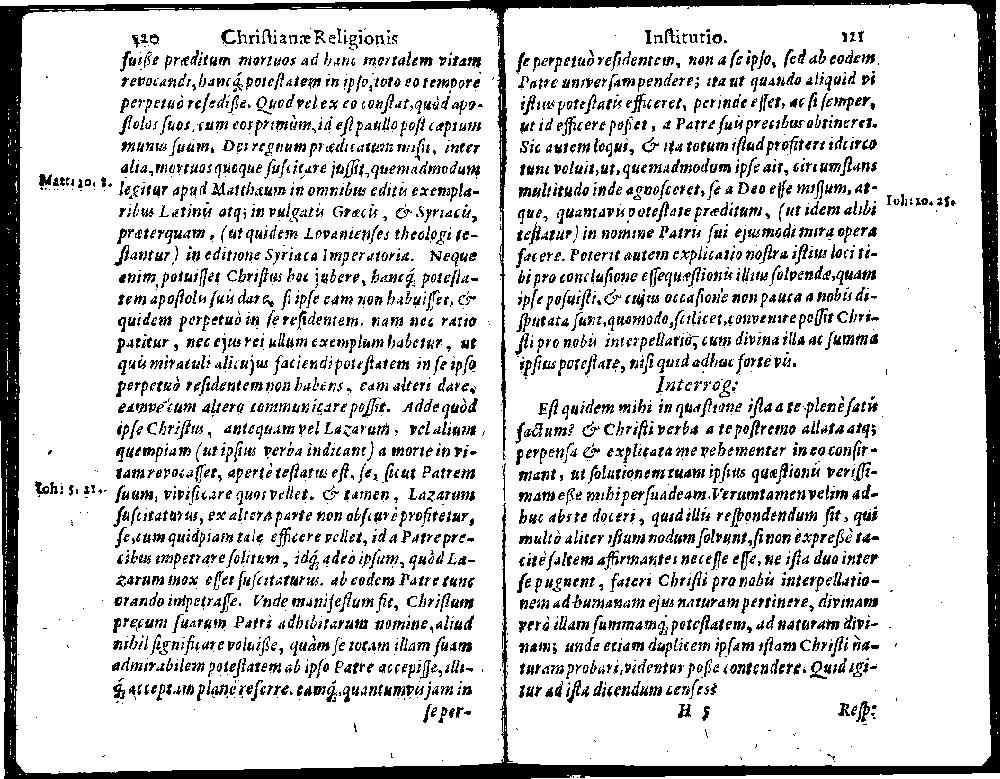 120 Christianæ Religionis
fuiße præditum mortuos ad hanc mortalem vitam
revocandi, hancq́; potestatem in ipso, toto eo tempore
perpetuò resediße. Quod vel ex eo constat, quòd apo-
stolos suos, cum eos primùm, id est paullo post captum
munus suum, Dei regnum prædicatum misit, inter
alia, mortuos quoque suscitare jussit, quemadmodum
Matt: 10. 8. legitur apud Matthæum in omnibus editis exempla-
ribus Latinis atq; in vulgatis Græcis, & Syriacis,
præterquam, (ut quidem Lovanienses theologi te-
stantur) in editione Syriaca Imperatoria. Neque
enim potuisset Christus hoc jubere, hancq́; potesta-
tem apostolis suis dare, si ipse eam non habuisset, &
quidem perpetuò in se residentem. nam nec ratio
patitur, nec ejus rei ullum exemplum habetur, ut
quis miraculi alicujus faciendi potestatem in se ipso
perpetuò residentem non habens, eam alteri dare,
eamve cum altero communicare possit. Adde quòd
ipse Christus, antequam vel Lazarum, vel alium
quempiam (ut ipsius verba indicant) a morte in vi-
tam revocasset, apertè testatus est, se, sicut Patrem
Ioh: 5. 21. suum, vivificare quos vellet. & tamen, Lazarum
suscitaturus, ex altera parte non obscurè profitetur,
se, cum quidpiam tale efficere vellet, id a Patre pre-
cibus impetrare solitum, idq́; adeò ipsum, quòd La-
zarum mox esset suscitaturus, ab eodem Patre tunc
orando impetrasse. Vnde manifestum fit, Christum
precum suarum Patri adhibitarum nomine, aliud
nihil significare voluiße, quàm se totam illam suam
admirabilem potestatem ab ipso Patre accepisse, illi-
q́; acceptam planè referre. eamq́;, quantumvis jam in
se per-
Institutio. 121
se perpetuò residentem, non a se ipso, sed ab eodem
Patre universam pendere; ita ut quando aliquid vi
istius potestatis efficeret, perinde esset, ac si semper,
ut id efficere poßet, a Patre suis precibus obtineret.
Sic autem loqui, & ita totum istud profiteri idcirco
tunc voluit, ut, quemadmodum ipse ait, circumstans
multitudo inde agnosceret, se a Deo esse missum, at-
que, quantavis potestate præditum, (ut idem alibi Ioh: 10. 25.
testatur) in nomine Patris sui ejusmodi mira opera
facere. Poterit autem explicatio nostra istius loci ti-
bi pro conclusione esse quæstionis illius solvendæ, quam
ipse posuisti, & cujus occasione non pauca a nobis di-
sputata sunt, quomodo, scilicet, convenire possit Chri-
sti pro nobis interpellatio, cum divina illa ac summa
ipsius potestate, nisi quid adhuc forte vis.
Interrog:
Est quidem mihi in quæstione ista a te plenè satis
factum: & Christi verba a te postremo allata atq;
perpensa & explicata me vehementer in eo confir-
mant, ut solutionem tuam ipsius quæstionis verissi-
mam eße mihi persuadeam. Verumtamen velim ad-
huc abs te doceri, quid illis respondendum sit, qui
multò aliter istum nodum solvunt, si non expreßè ta-
citè saltem affirmantes necesse esse, ne ista duo inter
se pugnent, fateri Christi pro nobis interpellatio-
nem ad humanam ejus naturam pertinere, divinam
verò illam summamq́; potestatem, ad naturam divi-
nam; unde etiam duplicem ipsam istam Christi na-
turam probari, videntur poße contendere. Quid igi-
tur ad ista dicendum censes?
H 5 Resp: